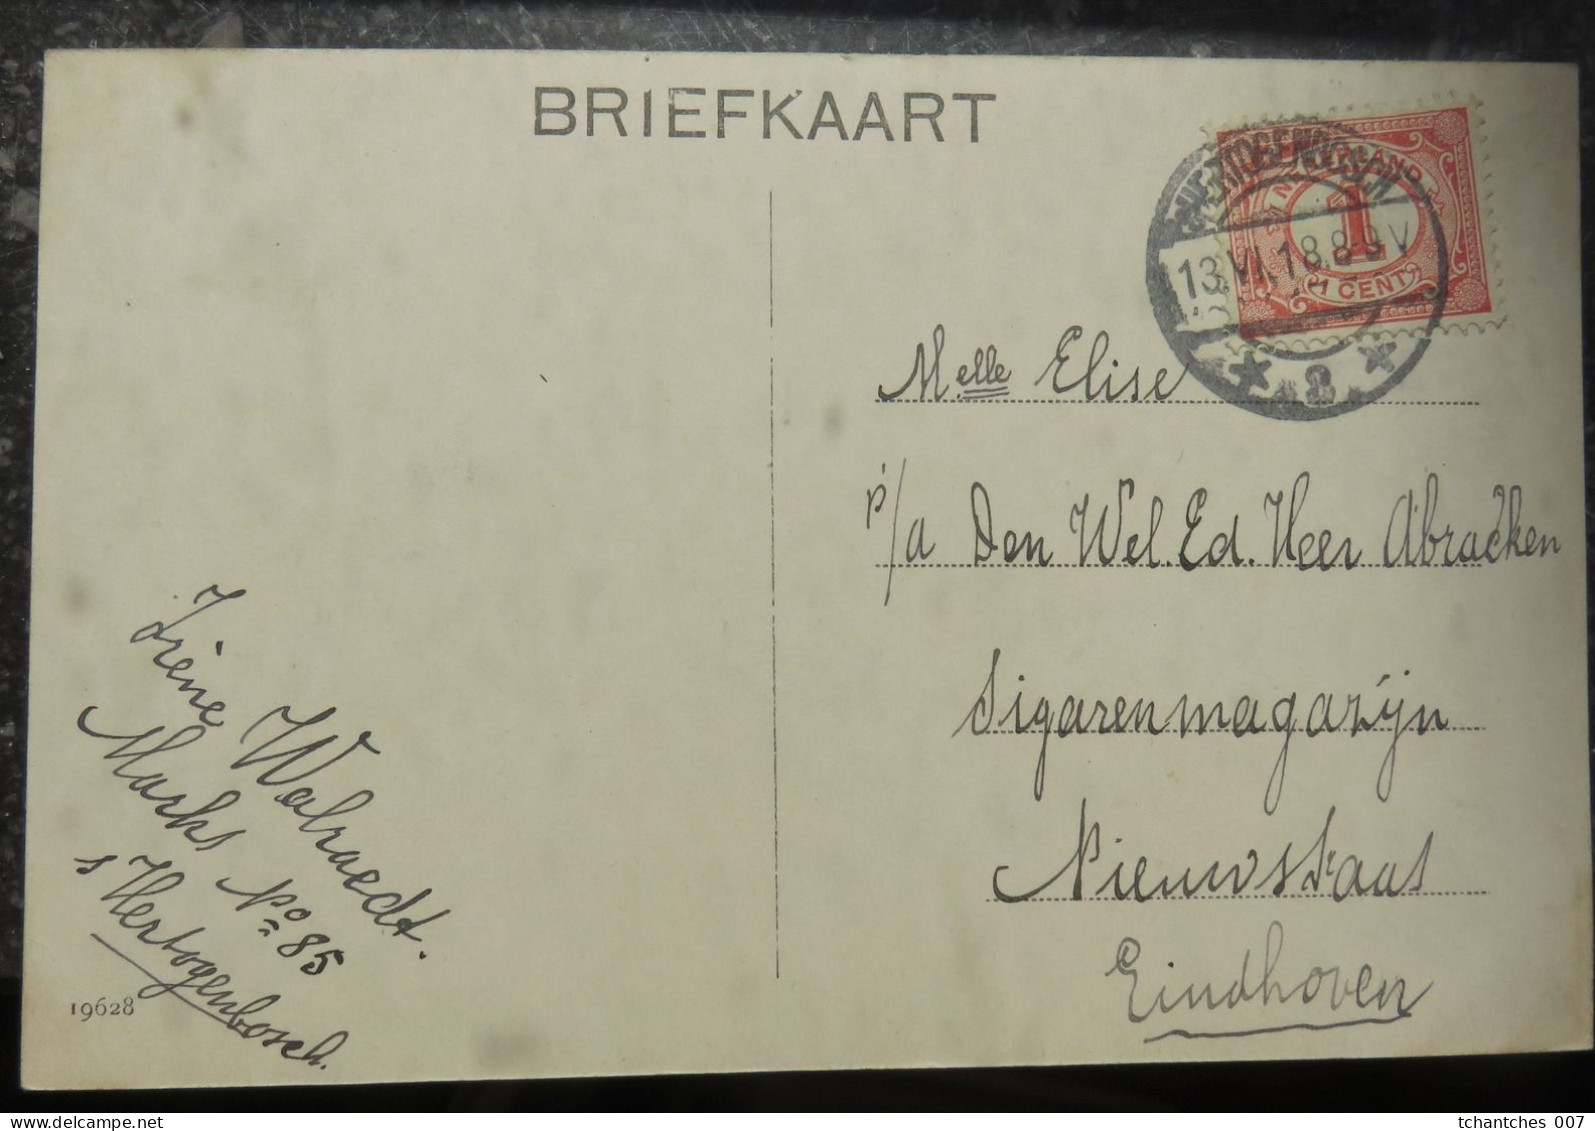 BRIEFKAART
HERTOGENBOSCH
NEDERLAND
1
1 CENT
13.VI.18.8-9V
2
Melle Elise
p/a Den Wel.Ed. Heer Abracken
Sigarenmagazijn
Nieuwstraat
Eindhoven
Irène Walraedt.
Markt No 85
s Hertogenbosch.
19628
www.delcampe.net
tchantches 007